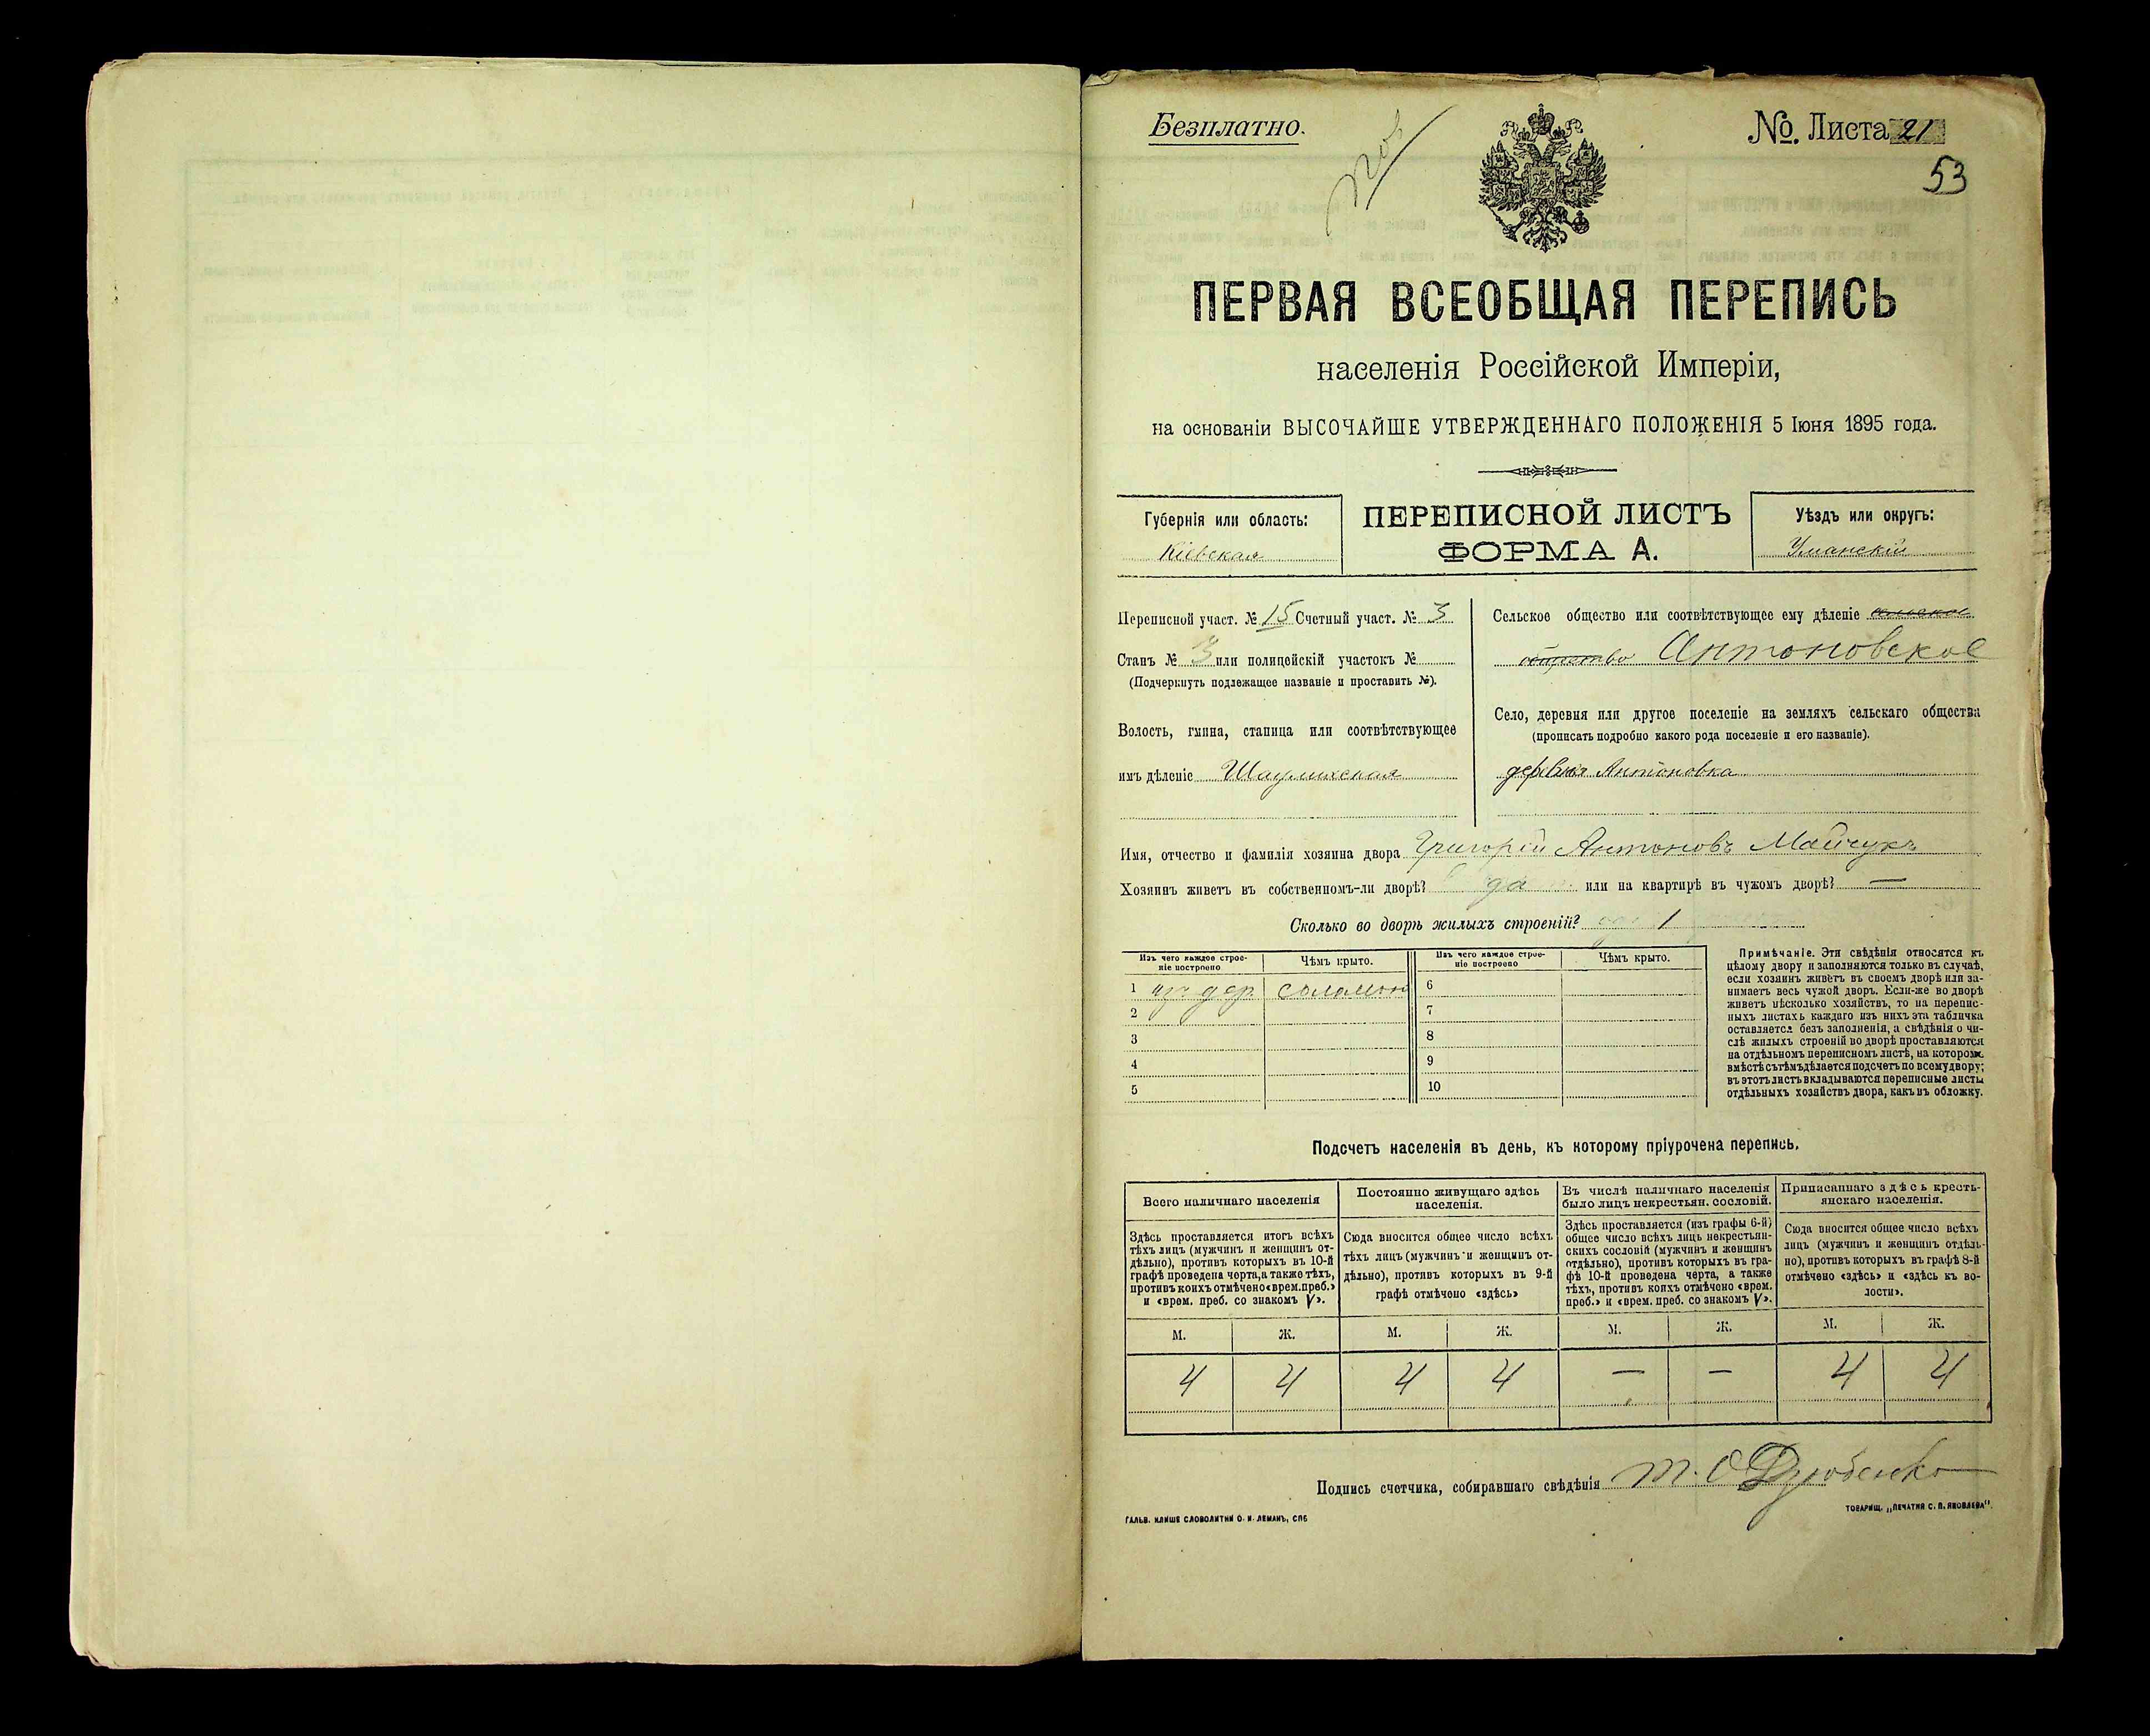 Безплатно.
№ Листа 21
53
ПЕРВАЯ ВСЕОБЩАЯ ПЕРЕПИСЬ
населенія Россійской Имперіи,
на основаніи ВЫСОЧАЙШЕ УТВЕРЖДЕННАГО ПОЛОЖЕНІЯ 5 Іюня 1895 года.
Губернія или область:
Кіевская
ПЕРЕПИСНОЙ ЛИСТЪ
ФОРМА А.
Уѣздъ или округъ:
Уманскій
Переписной участ. № 15 Счетный участ. № 3
Станъ № 3 или полицейскій участокъ №
(Подчеркнуть подлежащее названіе и проставить №).
Волость, гмина, станица или соотвѣтствующее
имъ дѣленіе
Сельское общество или соотвѣтствующее ему дѣленіе сельское
общество Антоновское
Село, деревня или другое поселеніе на земляхъ сельскаго общества
(прописать подробно какого рода поселеніе и его названіе).
деревня Антоновка
Имя, отчество и фамилія хозяина двора Григорій Антоновъ Майчукъ
Хозяинъ живетъ въ собственномъ-ли дворѣ? да или на квартирѣ въ чужомъ дворѣ? —
Сколько во дворѣ жилыхъ строеній? 1
Изъ чего каждое строе-
ніе построено
Чѣмъ крыто.
Изъ чего каждое строе-
ніе построено
Чѣмъ крыто.
1 изъ дер. соломой
6
2
7
3
8
4
9
5
10
Примѣчаніе. Эти свѣдѣнія относятся къ
цѣлому двору и заполняются только въ случаѣ,
если хозяинъ живетъ въ своемъ дворѣ или за-
нимаетъ весь чужой дворъ. Если-же во дворѣ
живетъ нѣсколько хозяйствъ, то на перепис-
ныхъ листахъ каждаго изъ нихъ эта табличка
оставляется безъ заполненія, а свѣдѣнія о чи-
слѣ жилыхъ строеній во дворѣ проставляются
на отдѣльномъ переписномъ листѣ, на которомъ
вмѣстѣ съ тѣмъ дѣлается подсчетъ по всему двору;
въ этотъ листъ вкладываются переписные листы
отдѣльныхъ хозяйствъ двора, какъ въ обложку.
Подсчетъ населенія въ день, къ которому пріурочена перепись.
Всего наличнаго населенія
Здѣсь проставляется итогъ всѣхъ
тѣхъ лицъ (мужчинъ и женщинъ от-
дѣльно), противъ которыхъ въ 10-й
графѣ проведена черта, а также тѣхъ,
противъ коихъ отмѣчено «врем. преб.»
и «врем. преб. со знакомъ V».
Постоянно живущаго здѣсь
населенія.
Сюда вносится общее число всѣхъ
тѣхъ лицъ (мужчинъ и женщинъ от-
дѣльно), противъ которыхъ въ 9-й
графѣ отмѣчено «здѣсь»
Въ числѣ наличнаго населенія
было лицъ некрестьян. сословій.
Здѣсь проставляется (изъ графы 6-й)
общее число всѣхъ лицъ некрестьян-
скихъ сословій (мужчинъ и женщинъ
отдѣльно), противъ которыхъ въ гра-
фѣ 10-й проведена черта, а также
тѣхъ, противъ коихъ отмѣчено «врем.
преб.» и «врем. преб. со знакомъ V».
Приписаннаго здѣсь кресть-
янскаго населенія.
Сюда вносится общее число всѣхъ
лицъ (мужчинъ и женщинъ отдѣль-
но), противъ которыхъ въ графѣ 8-й
отмѣчено «здѣсь» и «здѣсь къ во-
лости».
М. Ж. М. Ж. М. Ж. М. Ж.
4 4 4 4 — — 4 4
Подпись счетчика, собиравшаго свѣдѣнія
ГАЛЬВ. КЛИШЕ СЛОВОЛИТНИ О. И. ЛЕМАНЪ, СПБ
ТОВАРИЩ. „ПЕЧАТНЯ С. П. ЯКОВЛЕВА".